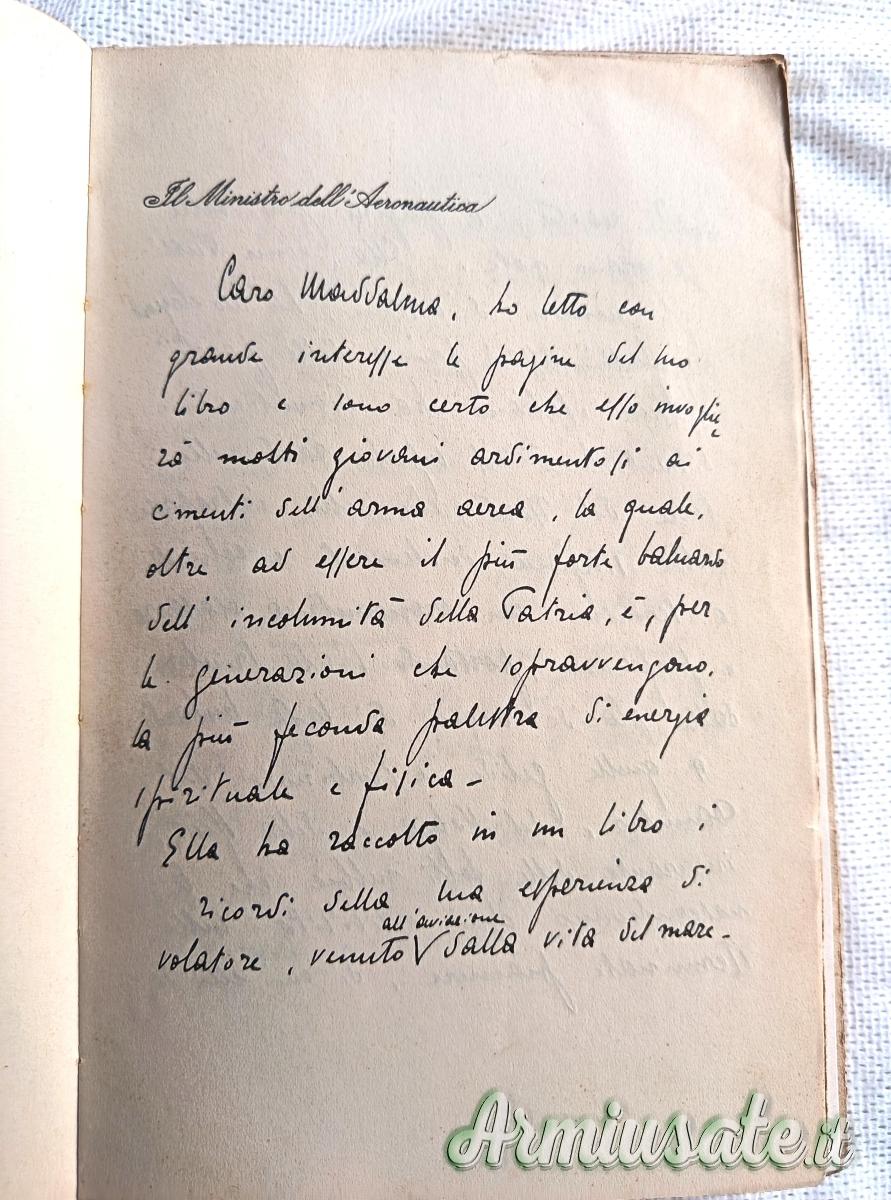 Il Ministro dell'Aeronautica
Caro Maddalena, ho letto con
grande interesse le pagine del suo
libro e sono certo che esso invoglie=
rà molti giovani ardimentosi ai
cimenti dell'arma aerea, la quale,
oltre ad essere il più forte baluardo
dell'incolumità della Patria, è, per
le generazioni che sopravvengono,
la più feconda palestra di energia
spirituale e fisica –
Ella ha raccolto in un libro i
ricordi della sua esperienza di
all'aviazione
volatore, venuto V dalla vita del mare –
Armiusate.it